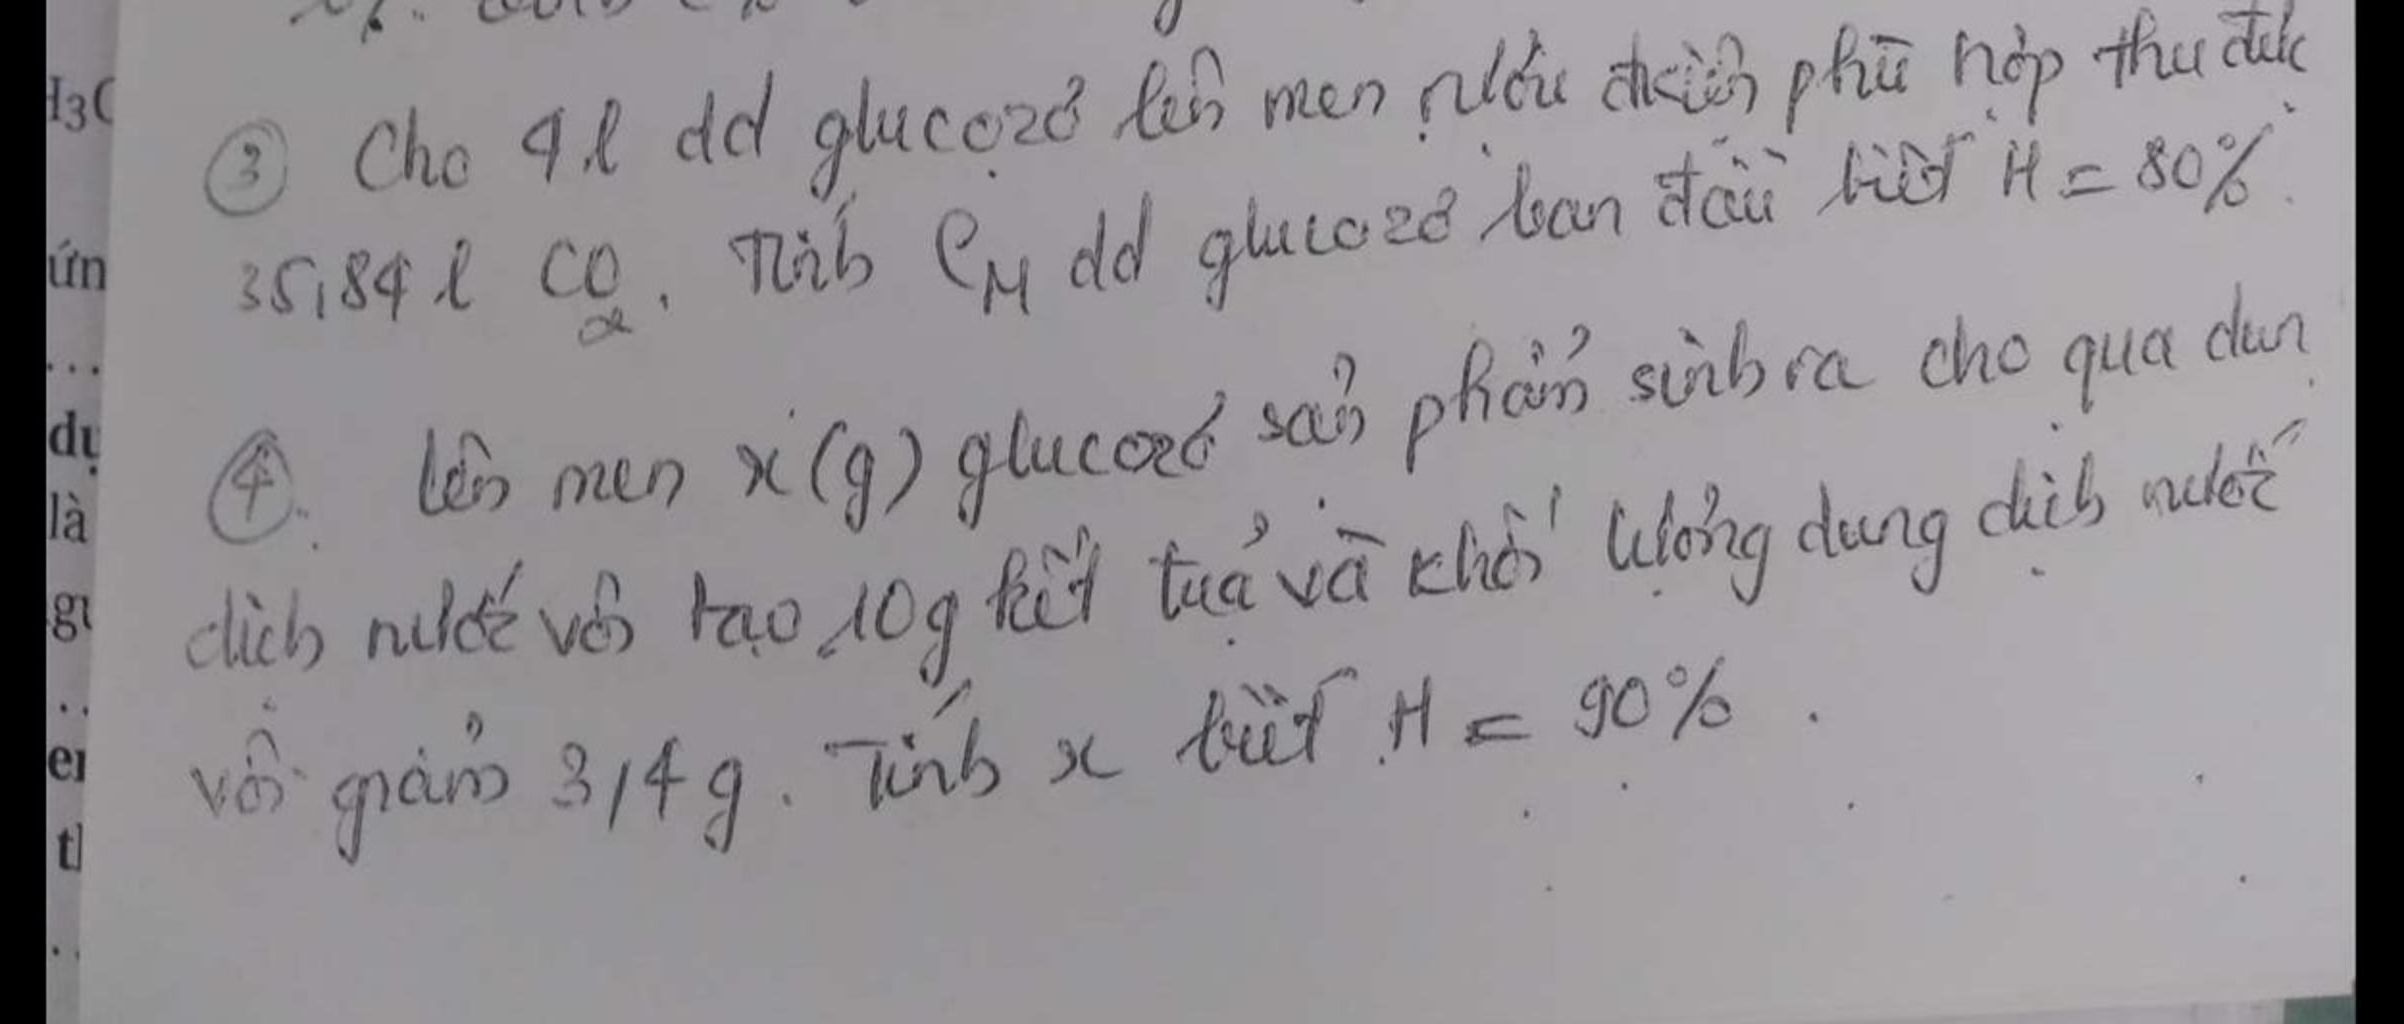 ③ Cho 4l dd glucozơ lên men rượu điều kiện phù hợp thu được
35,84 l CO2. Tính CM dd glucozơ ban đầu biết H = 80%.
④. Lên men x(g) glucozơ sản phẩm sinh ra cho qua dun
dịch nước vôi tạo 10g kết tủa và khối lượng dung dịch nước
vôi giảm 3,4g. Tính x biết H = 90%.
H3C
ứn
...
dụ
là
gi
..